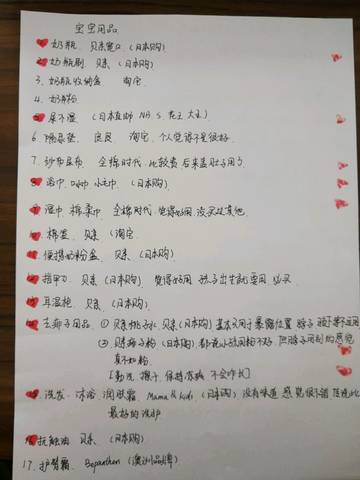 宝宝用品
1. 奶瓶、贝亲宽口 (日本购)
2. 奶瓶刷 贝亲 (日本购)
3. 奶瓶收纳盒 淘宝
4. 奶粉
5. 尿不湿 (日本直邮 NB S 花王 大王)
6. 隔尿垫 良良 淘宝, 个人觉得不是很好
7. 纱布尿布 全棉时代, 比较费 后来盖肚子用了
8. 浴巾、口水巾 小毛巾 (日本购)
9. 湿巾、棉柔巾 全棉时代, 觉得好用 没买过其他
10. 棉签 贝亲 (淘宝)
11. 便携奶粉盒 贝亲 (日本购)
12. 指甲刀 贝亲 (日本购) 觉得好用 孩子出生就要用 必买
13. 耳温枪 贝亲 (日本购)
14. 去痱子用品 ① 贝亲桃子水 贝亲 (日本购) 基本只用于暴露位置 脖子
② 贝亲痱子粉 (日本购) 都说小孩用粉不好, 但脖子用别的感觉
真不如粉
[勤洗 擦干, 保持凉爽 不会咋长]
15. 洗发、沐浴 润肤霜 Mama & Kids (日本购) 没有味道 感觉很不错
最好的洗护
16. 抚触油 贝亲 (日本购)
17. 护臀霜 Bepanthen (澳洲品牌)